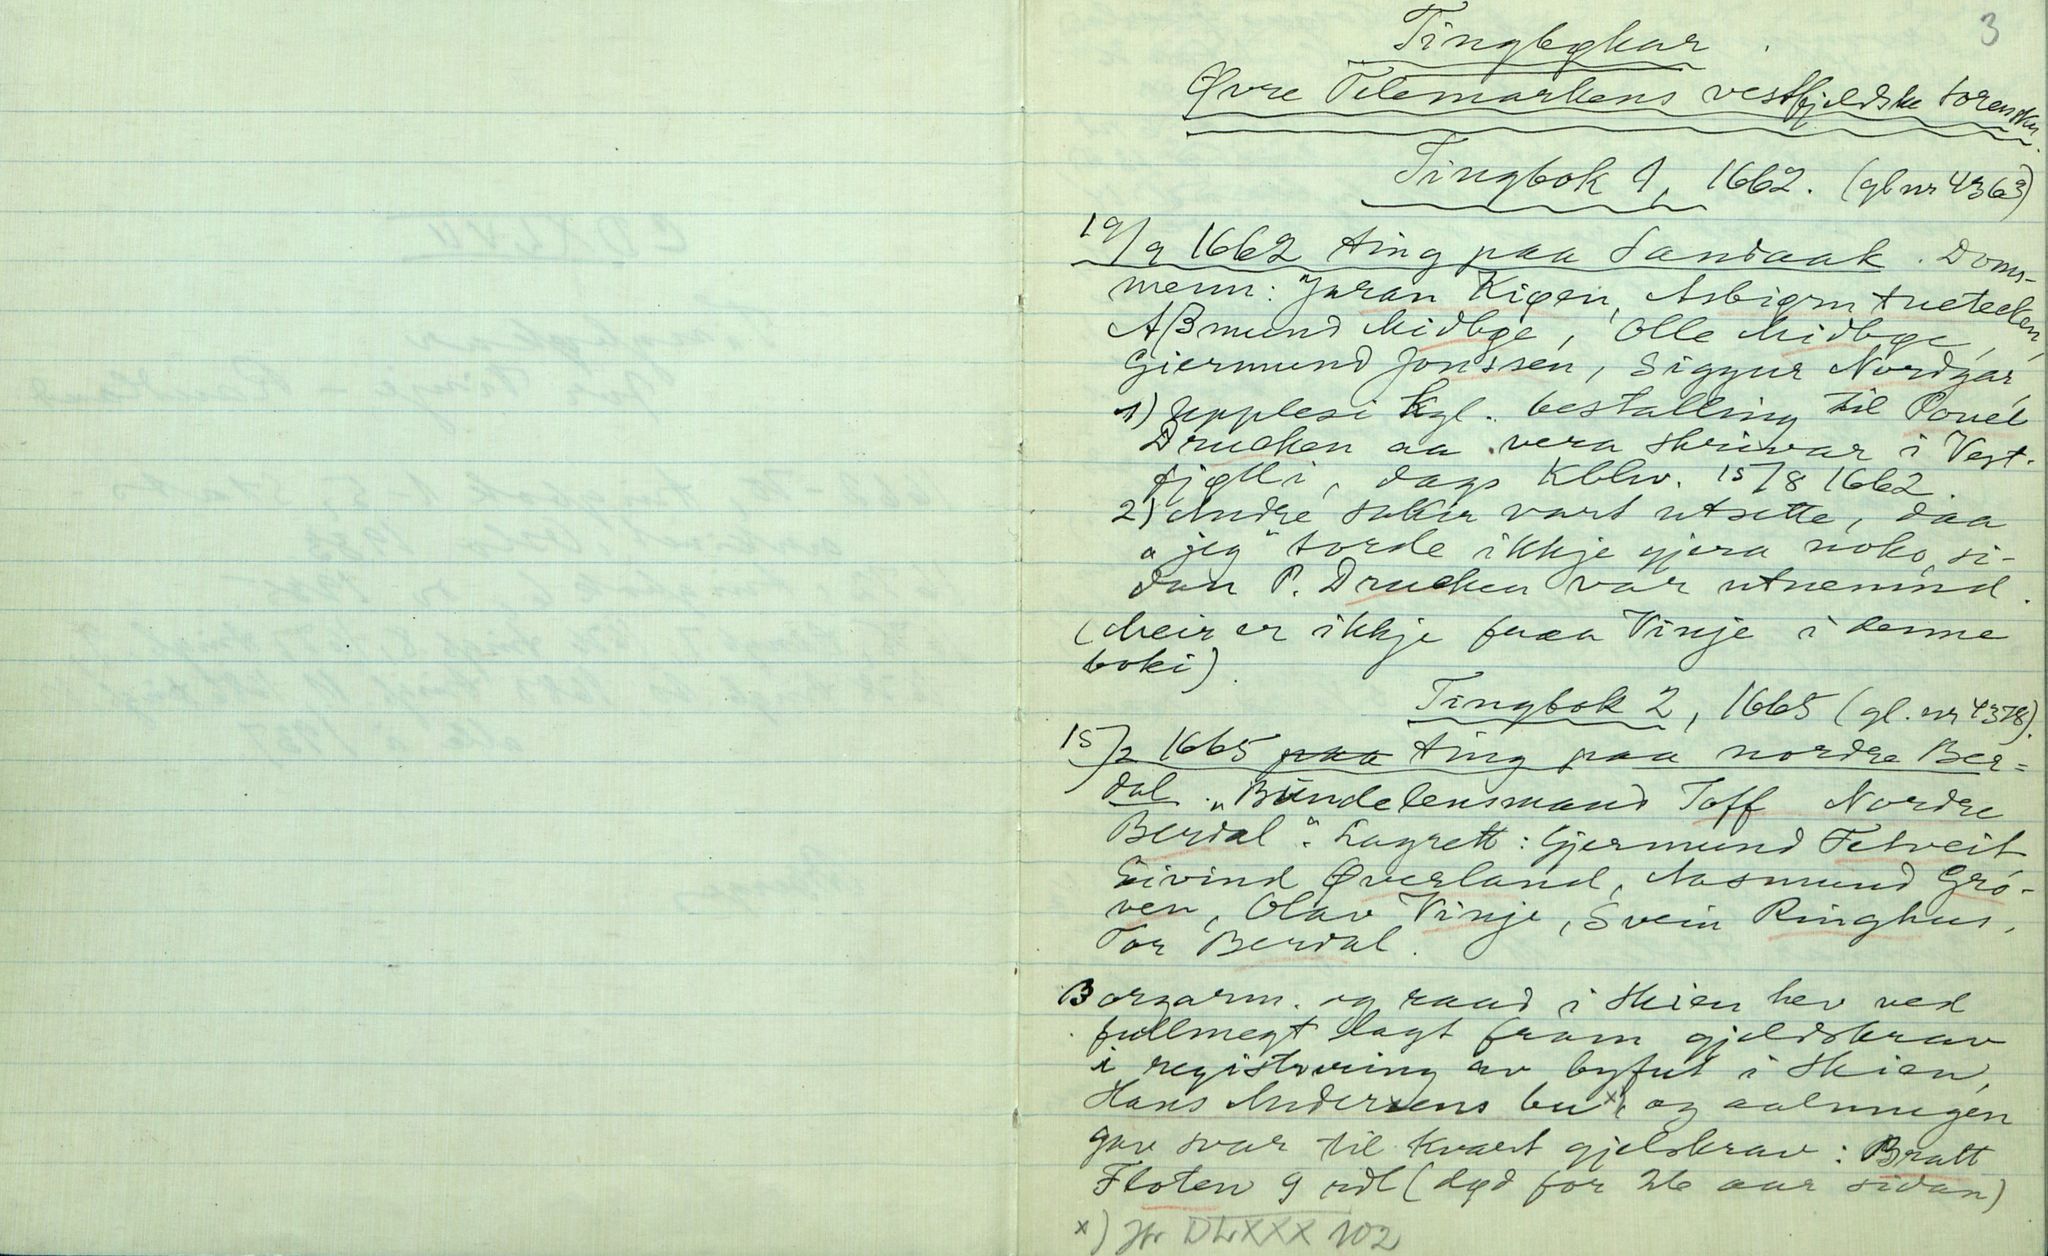 3
Tingbøkar
Øvre Telemarkens vestfjeldske sorenskr.
Tingbok 1, 1662. (gl nr 4363)
19/9 1662 ting paa Sandaak. Doms-
menn: "Jøran Kigen, Asbiørn tueteden,
Aßmund Midbøe, Olle Midbøe,
Giermund Jonssen, Siggur Nordgar,
1) Upplesi kgl. bestalling til Pouel
Drucken aa vera skrivar i Vest-
fjølli, dags Kbhv. 15/8 1662.
2) Andre saker vart utsette, daa
"jeg" torde ikkje gjera noko, si-
dan P. Drucken var utnemnd.
(Meir er ikkje fraa Vinje i denne
boki).
Tingbok 2, 1665 (gl. nr 4378).
15/2 1665 paa ting paa nordre Ber=
dal. "Bøndelensmand Toff Nordre
Berdal". Lagrett: Gjermund Tetveit
Eivind Øverland, Aasmund Gro-
ven, Olav Vinje, Svein Ringhus,
Tor Berdal.
Borgarm. og raad i Skien hev ved
fullmegt lagt fram gjeldskrav
i registrering av byfut i Skien,
Hans Andersens bu x), og aalmugen
gav svar til kvart gjelskrav: Bratt
Floten 9 rdl (død for 26 aar sidan)
x) Jfr DLXXX 102